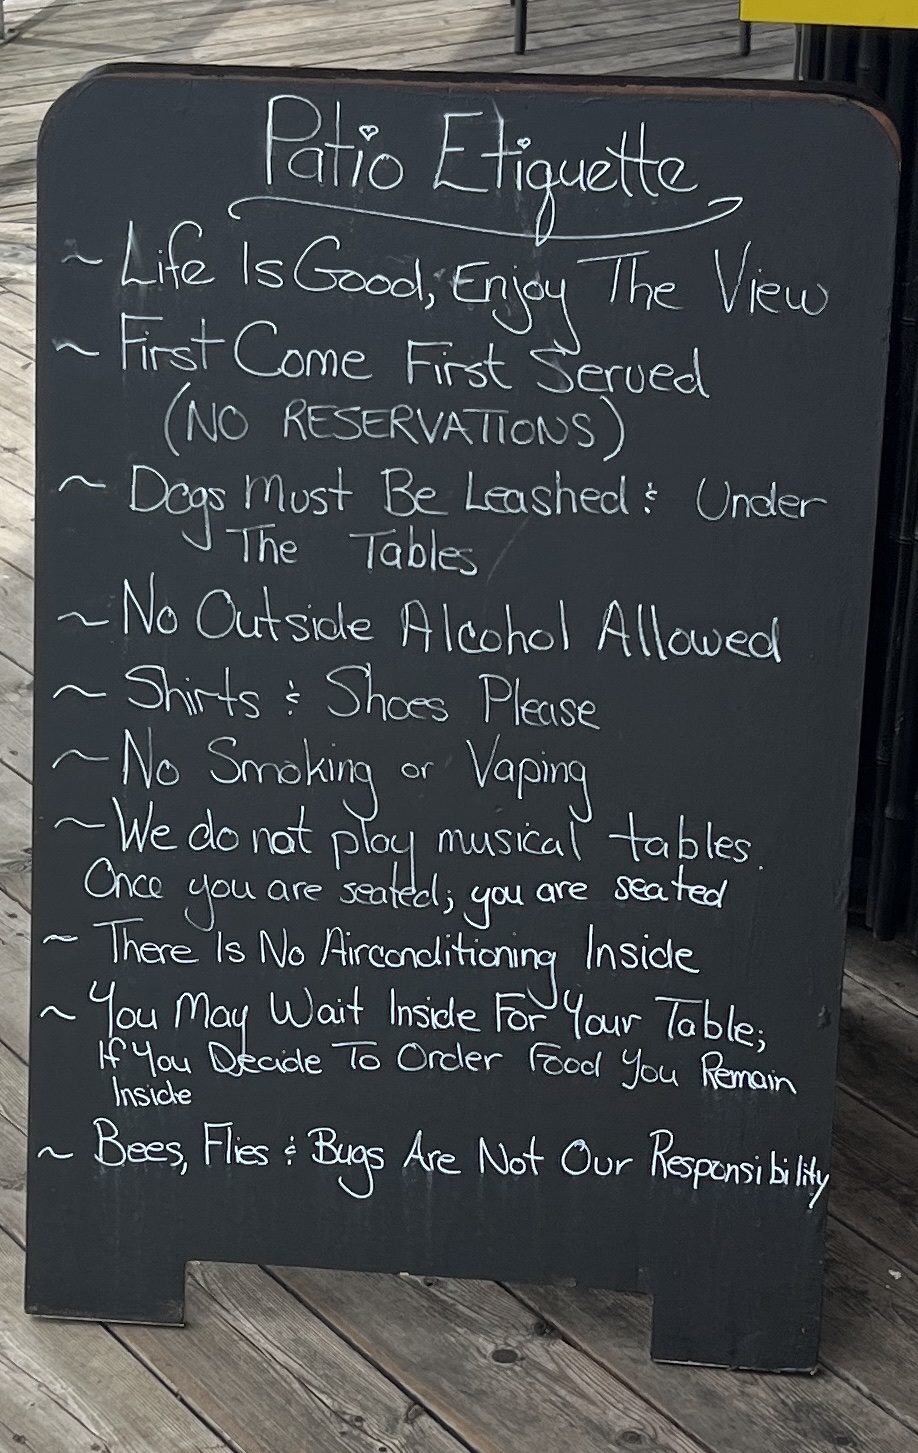 Patio Etiquette
~ Life Is Good, Enjoy The View
~ First Come First Served
(NO RESERVATIONS)
~ Dogs Must Be Leashed & Under
The Tables
~ No Outside Alcohol Allowed
~ Shirts & Shoes Please
~ No Smoking or Vaping
~ We do not play musical tables.
Once you are seated; you are seated
~ There Is No Airconditioning Inside
~ You May Wait Inside For Your Table;
If You Decide To Order Food You Remain
Inside
~ Bees, Flies & Bugs Are Not Our Responsibility